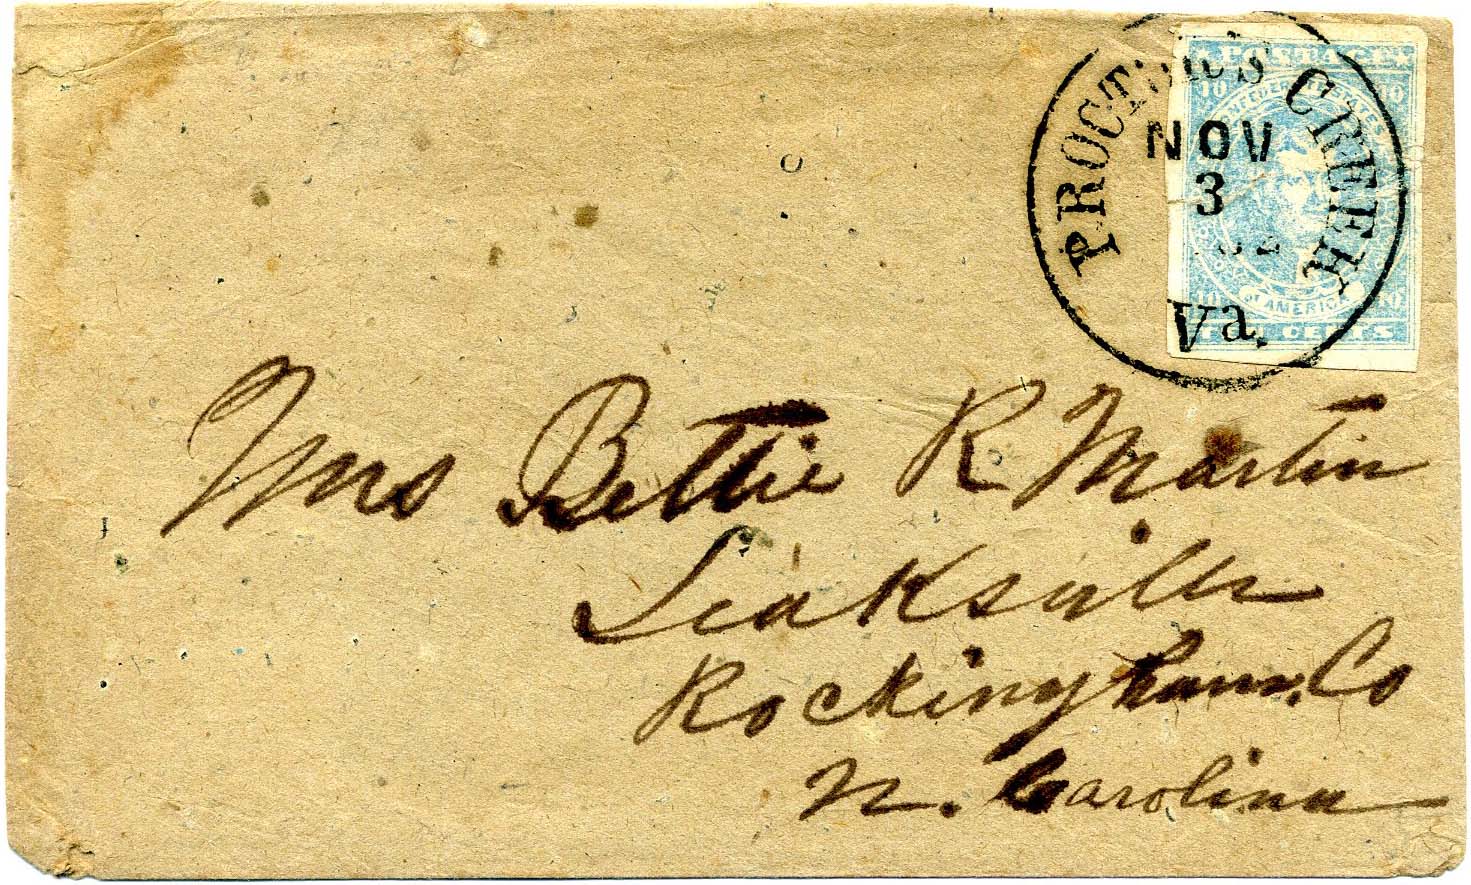 POSTAGE
10 10
CONFEDERATE STATES
OF AMERICA
10 10
TEN CENTS
PROCTOR'S CREEK
NOV
3
Va.
Mrs Bettie R Martin
Leaksville
Rockingham. Co
N. Carolina